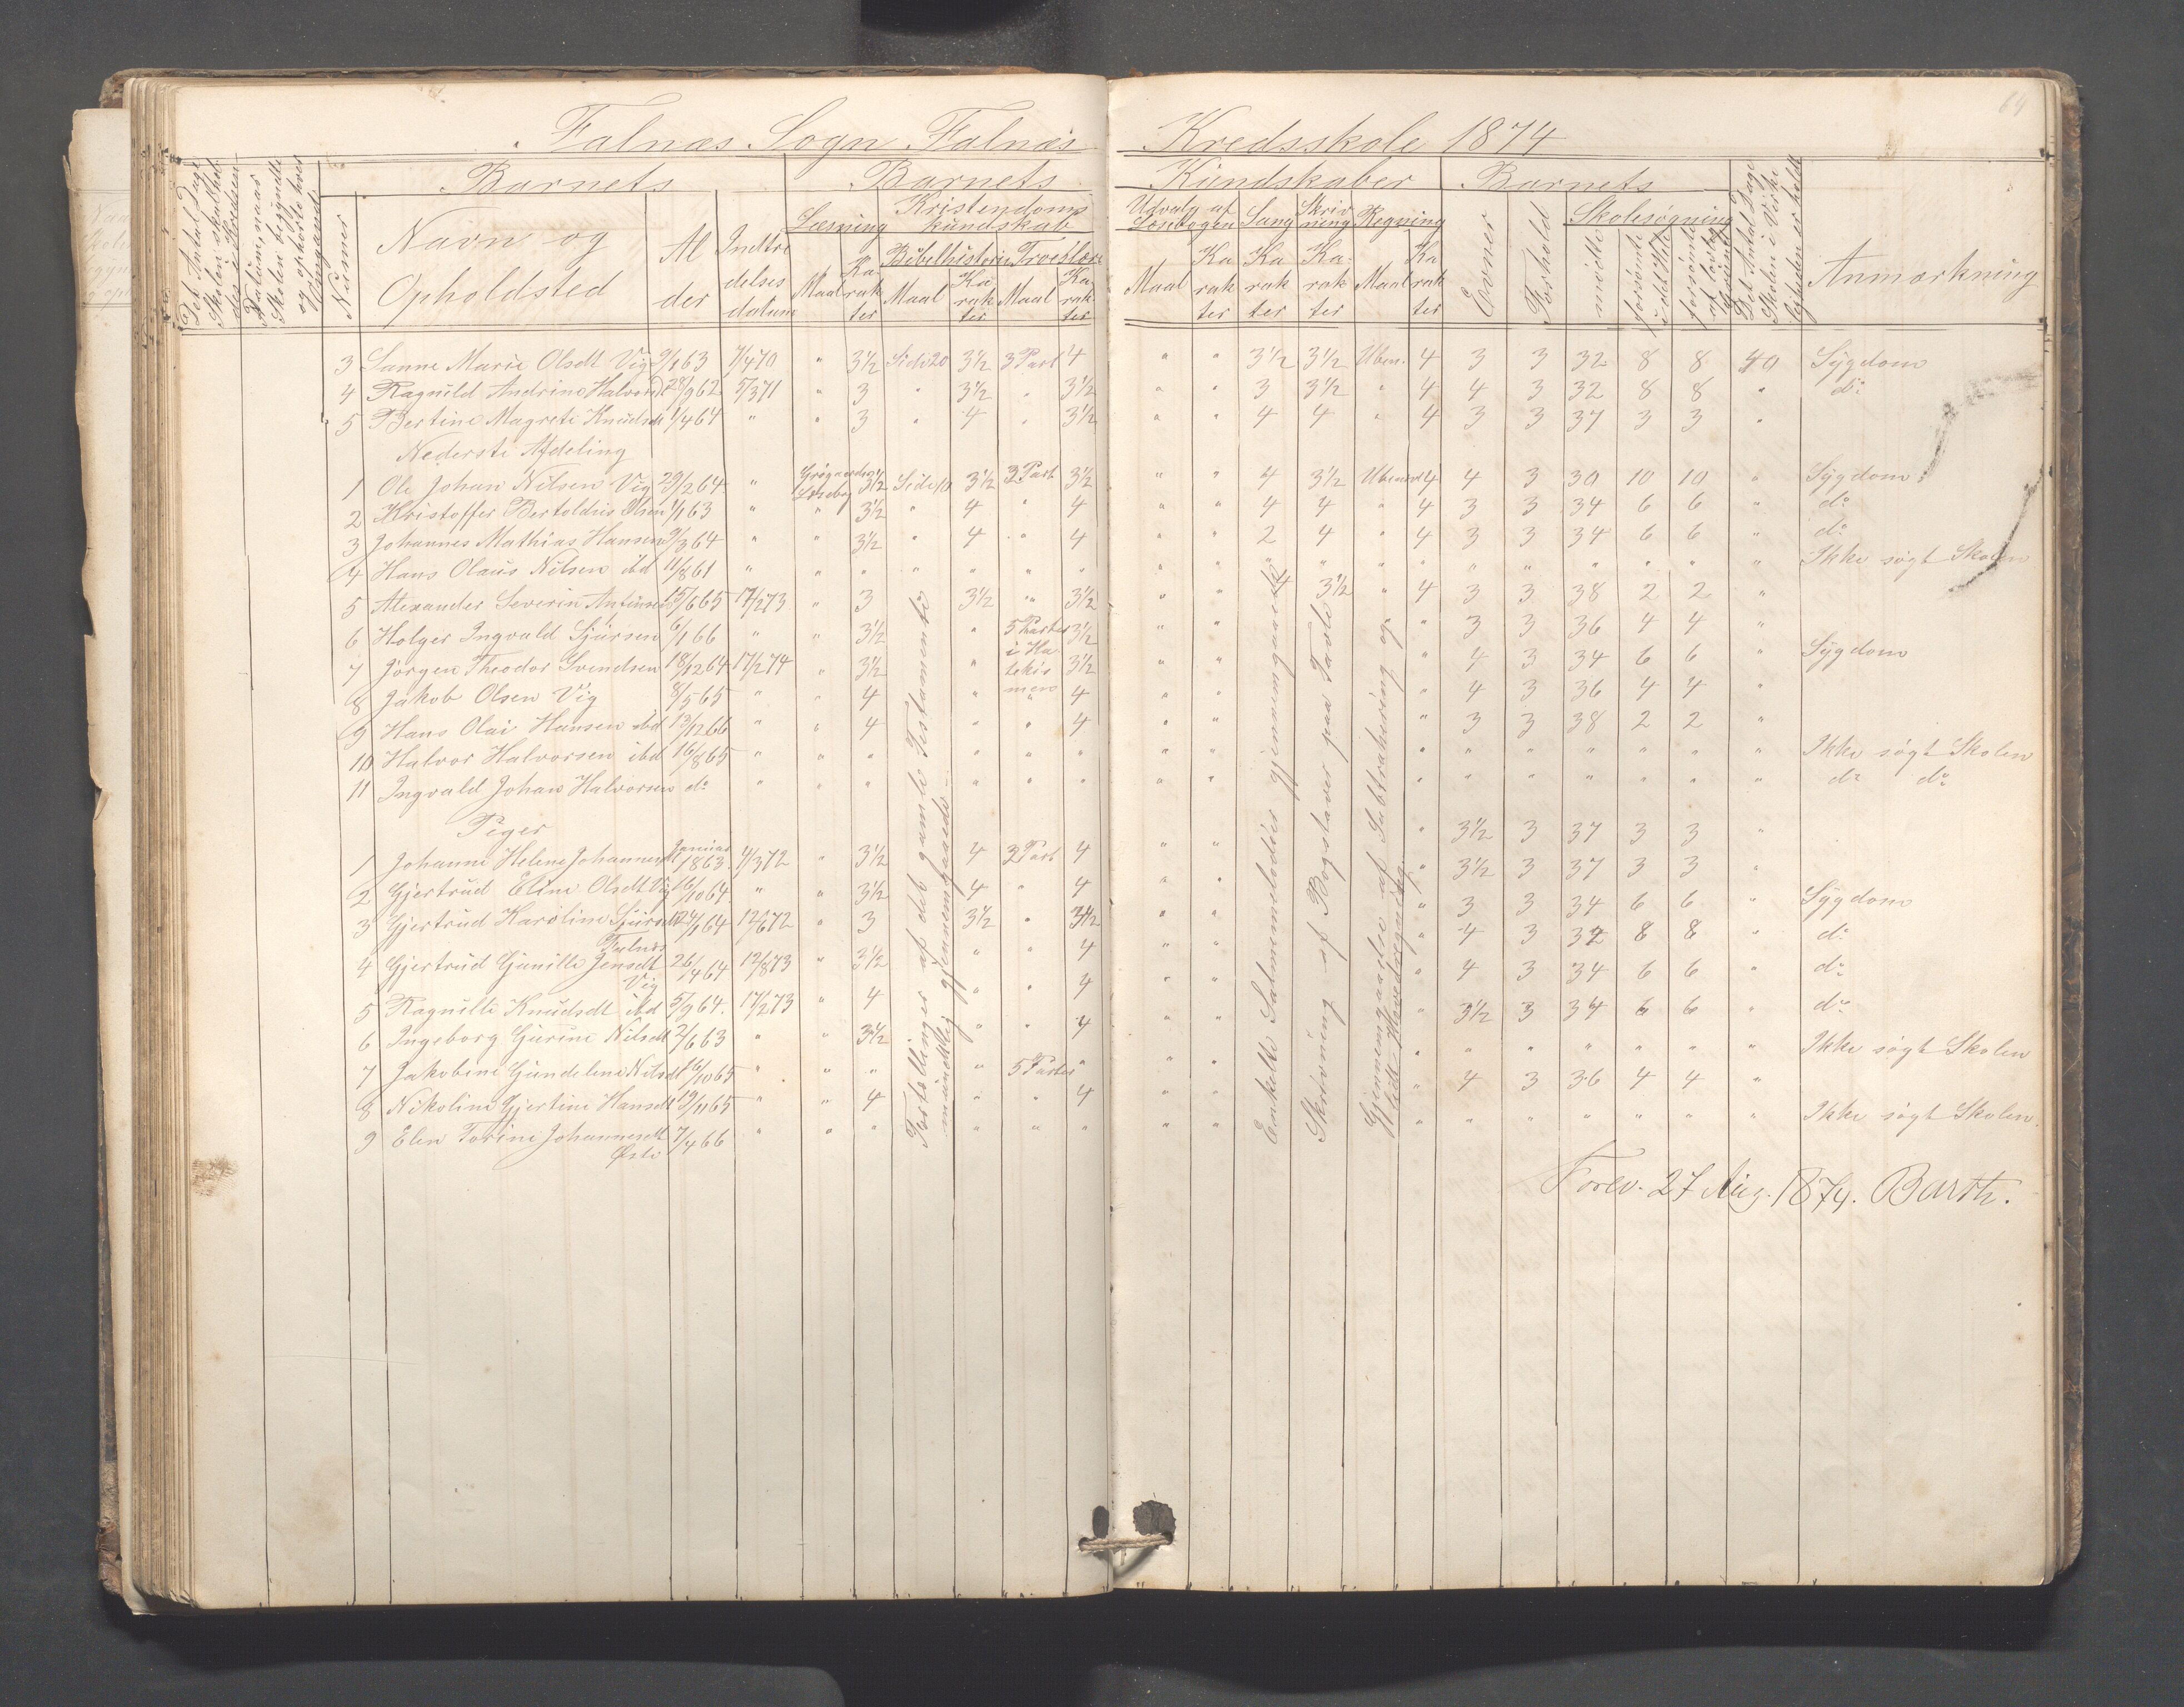 64
Falnæs Sogn Falnæs Kredsskole 1874
Det Antal Dage Skolen skal holdes i Kredsen
Datum, naar Skolen begyndte og ophørte hver Gang
Barnets
Nummer
Navn og Opholdsted
Alder
Indtrædelses datum
Barnets Kundskaber
Læsning
Maal
Karakter
Kristendoms kundskab
Bibelhistorie
Maal
Karakter
Troeslære
Maal
Karakter
Udvalg af Læsebogen
Maal
Karakter
Sang
Karakter
Skrivning
Karakter
Regning
Maal
Karakter
Barnets
Evner
Forhold
Skolesøgning
mødte
forsømte i det Hele
forsømte af lovlig Grund
Det Antal Dage Skolen i Virkeligheden er holdt
Anmærkning
3 Sanne Marie Olsdt Vig 9/1 63 7/4 70 " 3½ Side 20 3½ 3 Part 4 " " 3½ 3½ Uben. 4 3 3 32 8 8 40 Sygdom
4 Ragnild Andrine Halvorsdt 28/9 62 5/3 71 " 3 " 3½ " 3½ " " 3 3½ " 4 4 3 32 8 8 " do
5 Bertine Magrete Knudsdt 1/4 64 " " 3 " 4 " 3½ " " 4 4 " 4 3 3 37 3 3 "
Nederste Afdeling
1 Ole Johan Nilsen Vig 29/2 64 " Læsebog 3½ Side 10 3½ 3 Part 3½ " " 4 3½ Ubenævnt 4 4 3 30 10 10 " Sygdom
2 Kristoffer Bertoldus Olsen 1/1 63 " " 3½ " 4 " 4 " " 4 4 " 4 3 3 34 6 6 " do
3 Johannes Mathias Hansen 9/3 64 " " 3½ " 4 " 4 " " 2 4 " 4 3 3 34 6 6 " do
4 Hans Olaus Nilsen ibd 11/8 61 " " " " " " " " " " " " " " " " " " " Ikke søgt Skolen
5 Alexander Severin Antonsen 15/6 65 17/2 73 " 3 3½ " 3½ " " 4 3½ " 4 3 3 38 2 2 "
6 Holger Ingvald Sjursen 6/1 66 " " 3½ " 5 Parter i Katekismen 3½ " " " 3 3 36 4 4 "
7 Jörgen Theodor Svendsen 18/12 64 17/2 74 " 3½ " 3½ " " " 4 3 34 6 6 " Sygdom
8 Jakob Olsen Vig 8/5 65 " " 4 " " 4 " " " 4 3 36 4 4 "
9 Hans Olai Hansen ibd 13/12 66 " " 4 " " 4 " " " 3 3 38 2 2 "
10 Halvor Halvorsen ibd 16/8 65 " " " " " " " " " " " " " " " Ikke søgt Skolen
11 Ingvald Johan Halvorsen do " " " " " " " " " " " " " " " do do
Piger
1 Johanne Helene Johannesdt Januar 1863 4/3 72 " 3½ 4 3 Part 4 " " " 3½ 3 37 3 3 "
2 Gjertrud Eline Olsdt Vig 16/10 64 " " 3½ 4 " 4 " " " 3½ 3 37 3 3 "
3 Gjertrud Karoline Sjursdt Falnæs 24/1 64 12/6 72 " 3 3½ " 3½ " " " 3 3 34 6 6 " Sygdom
4 Gjertrud Gunille Jensdt Vig 26/4 64 12/8 73 " 3½ " " 4 " " " 4 3 32 8 8 " do
5 Ragnille Knudsdt ibd 5/9 64. 17/2 73 " 4 " " 4 " " " 4 3 34 6 6 " do
6 Ingeborg Gurine Nilsdt 2/6 63 " " 3½ " " 4 " " " 3½ 3 34 6 6 " do
7 Jakobine Gundeline Nilsdt 16/10 65 " " " " 5 Parter " " " " " " " " " " Ikke søgt Skolen
8 Nikoline Gjertine Hansdt 19/11 65 " " 4 " " 4 " " " 4 3 36 4 4 "
9 Elen Torine Johannesdt 7/4 66 " " " " " " " " " " " " " " " Ikke søgt Skolen.
Fortællinger af det gamle Testamente
mundtlig gjennemgaaede
Enkelte Salmemelodier gjennemgaaede
Skrivning af Bogstaver paa Tavle
Gjennemgaaelse af Subtrahering og
lidt Hovedregning
Forev. 27 Aug. 1874. Barth.